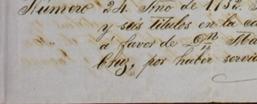 Número 24. Año de 1752.
y seis Títulos en la
a favor de Dn
Cruz, por haber servi